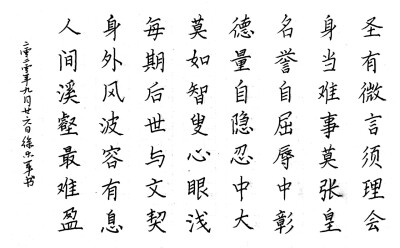 圣有微言须理会
身当难事莫张皇
名誉自屈辱中彰
德量自隐忍中大
莫如智叟心眼浅
每期后世与文契
身外风波容有息
人间溪壑最难盈
二零二零年九月廿六日徐军书